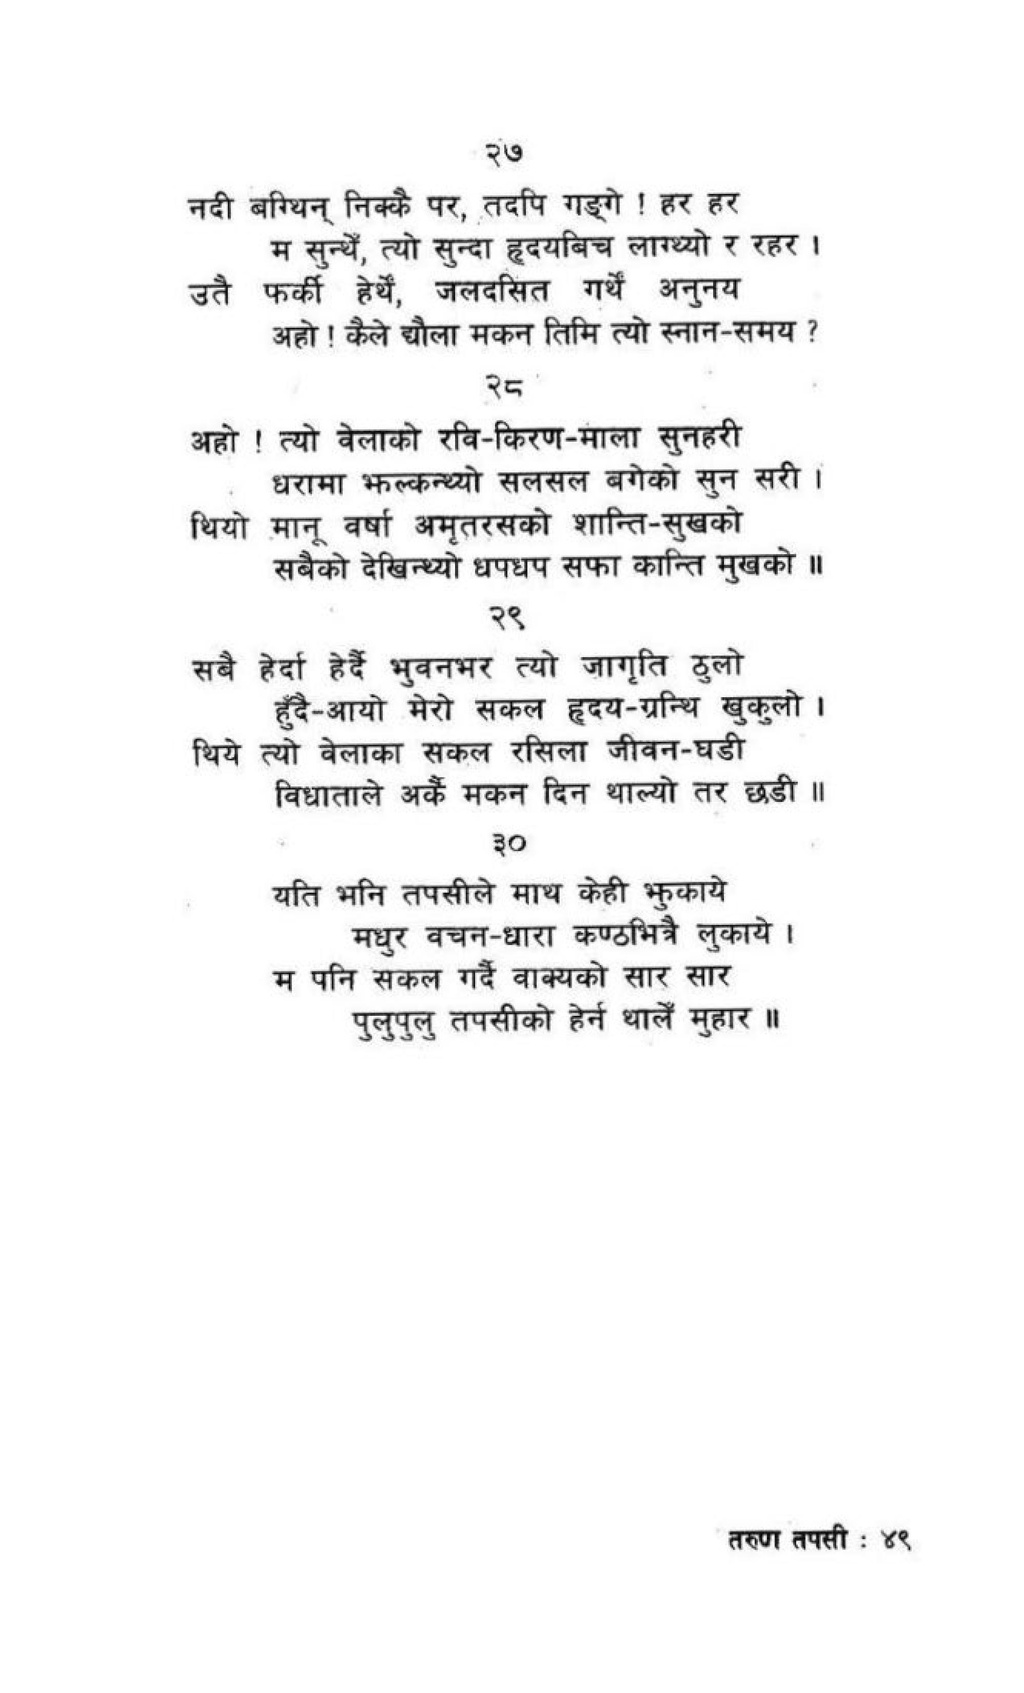 २७
नदी बग्थिन् निक्कै पर, तदपि गङ्गे ! हर हर
म सुन्थेँ, त्यो सुन्दा हृदयबिच लाग्थ्यो र रहर ।
उतै फर्की हेर्थेँ, जलदसित गर्थेँ अनुनय
अहो ! कैले द्यौला मकन तिमि त्यो स्नान-समय ?
२८
अहो ! त्यो वेलाको रवि-किरण-माला सुनहरी
धरामा झल्कन्थ्यो सलसल बगेको सुन सरी ।
थियो मानू वर्षा अमृतरसको शान्ति-सुखको
सबैको देखिन्थ्यो धपधप सफा कान्ति मुखको ॥
२९
सबै हेर्दा हेर्दै भुवनभर त्यो जागृति ठुलो
हुँदै-आयो मेरो सकल हृदय-ग्रन्थि खुकुलो ।
थिये त्यो वेलाका सकल रसिला जीवन-घडी
विधाताले अर्कै मकन दिन थाल्यो तर छडी ॥
३०
यति भनि तपसीले माथ केही झुकाये
मधुर वचन-धारा कण्ठभित्रै लुकाये ।
म पनि सकल गर्दै वाक्यको सार सार
पुलुपुलु तपसीको हेर्न थालेँ मुहार ॥
तरुण तपसी : ४९